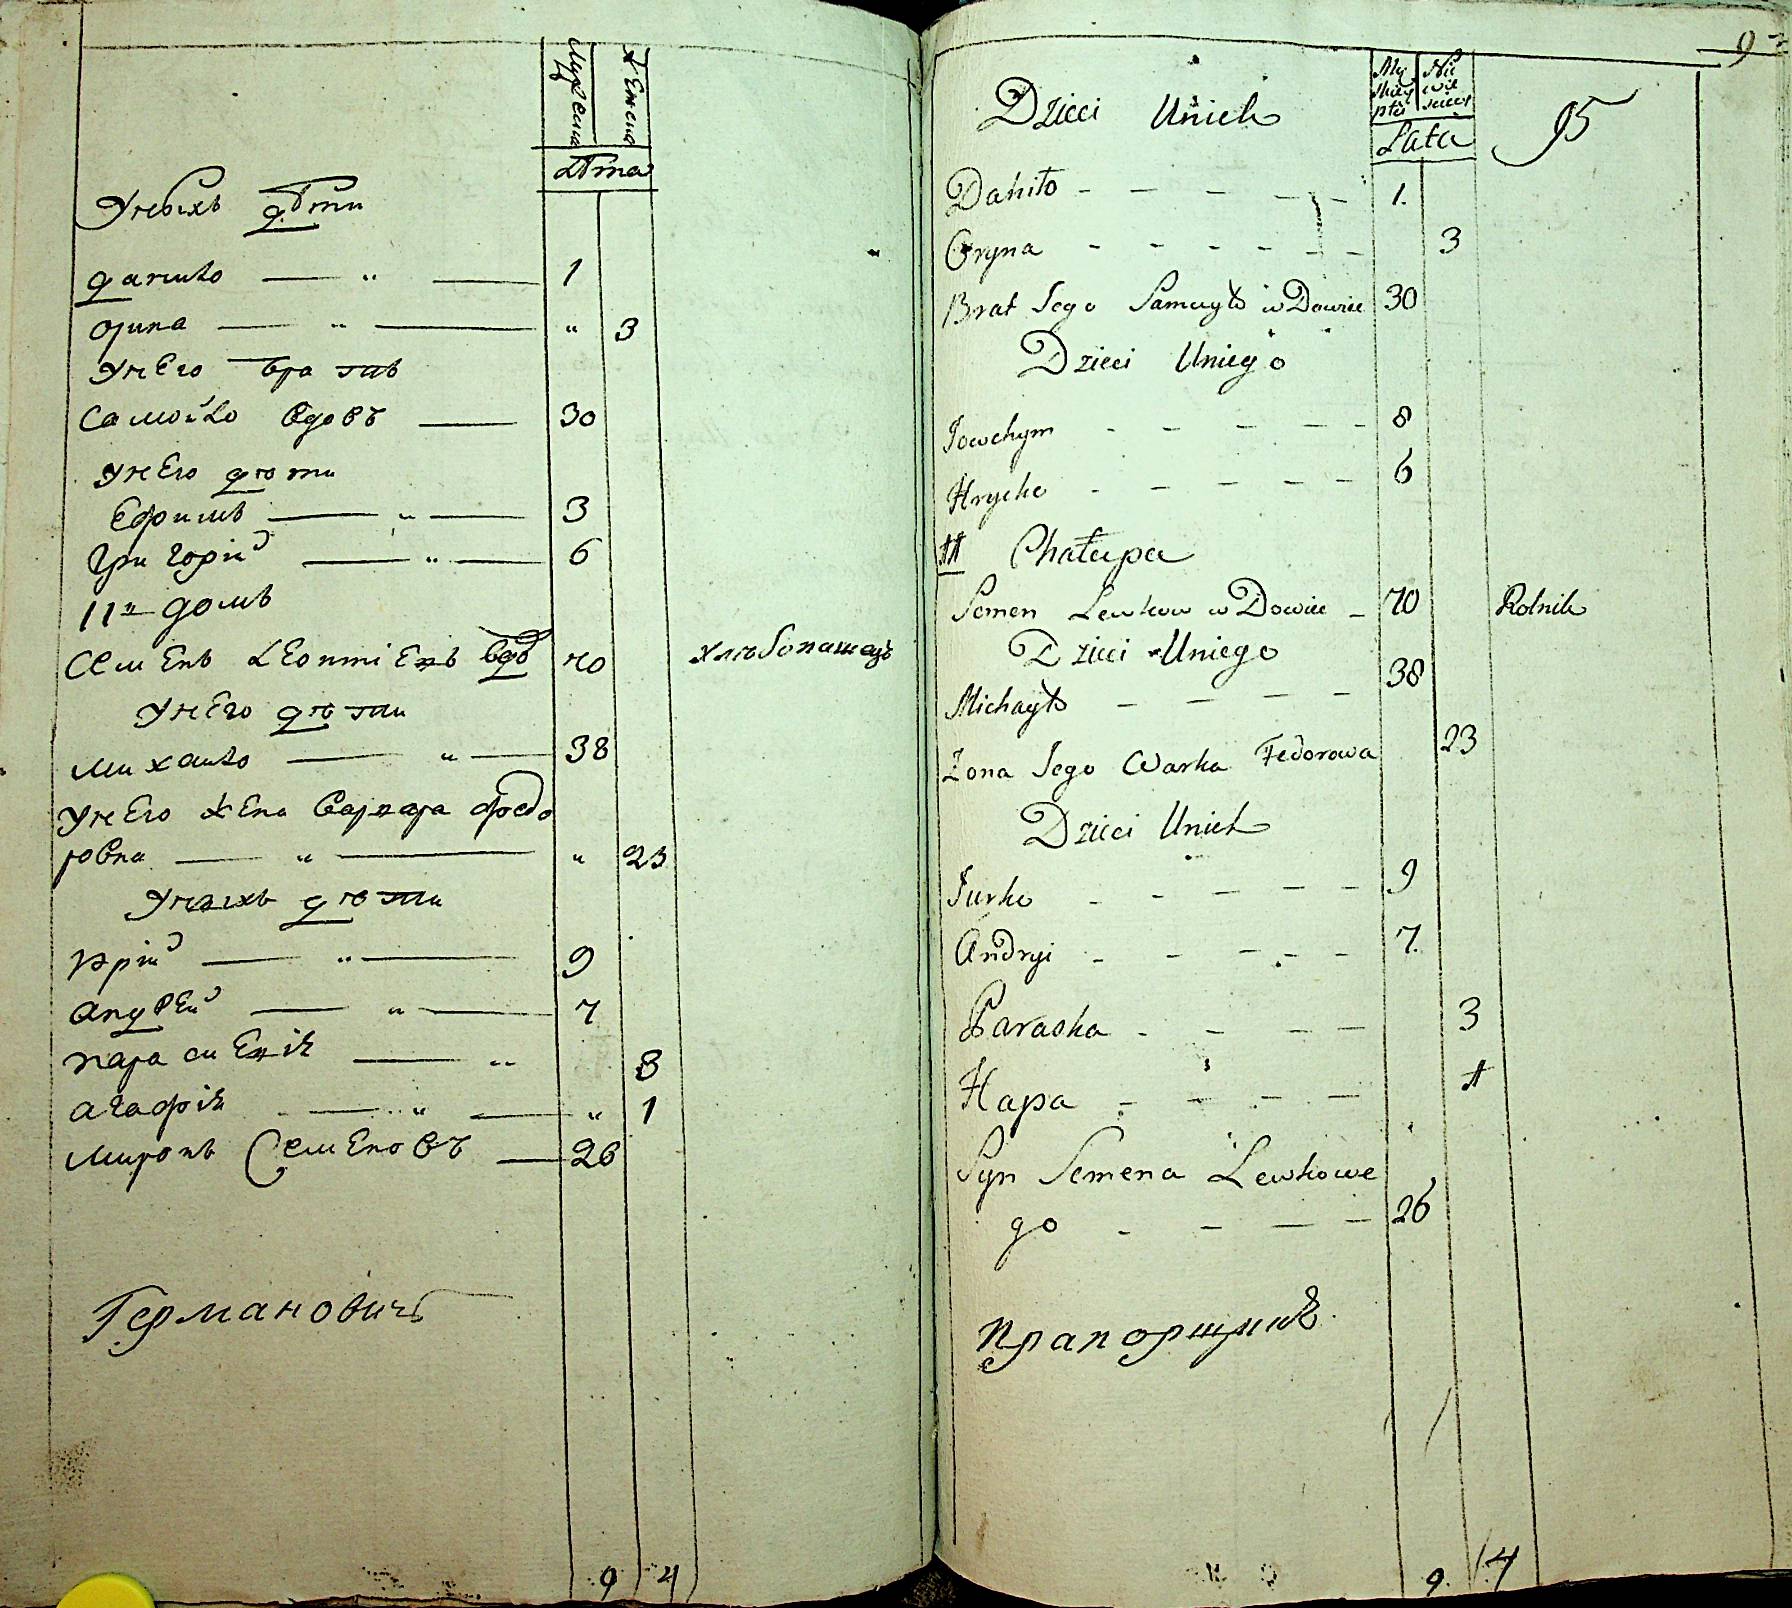 Мужеска Женска
Лѣта
У нсыхъ дѣти
данило — „ — 1
орина — „ — „ 3
У нєго братъ
Самойло вдовъ — 30
У нєго дѣти
Єфимъ — „ — 3
Григорій — „ — 6
11й домъ
Сємєнъ Лєонтієвъ вдовъ 70 хлѣбопашецъ
У нєго дѣти
михаило — „ — 38
У нєго жєна Варвара Фєдо
ровна — „ — „ 23
У нихъ дѣти
юрій — „ — 9
андрєй — „ — 7
параскєвія — „ 3
агафія — „ — „ 1
миронъ Сємєновъ — 26
Германовичъ
9 4
9
Dzieci Unich
Lata
95
Daniło - - - - - 1.
Oryna - - - - - - 3
Brat Jego Samuyło w Dowiec 30
Dzieci Uniego
Jowchym - - - - - 8
Hrycko - - - - - 6
11 Chałupa
Semen Lewkow w Dowiec - 70 Rolnik
Dzieci Uniego
Michayło - - - - 38
Zona Jego Warka Fedorowa 23
Dzieci Unich
Jurko - - - - - 9
Andryi - - - - - 7.
Paraska - - - - 3
Hapa - - - - 1
Syn Semena Lewkowe
go - - - - 26
прапорщикъ
9. 4